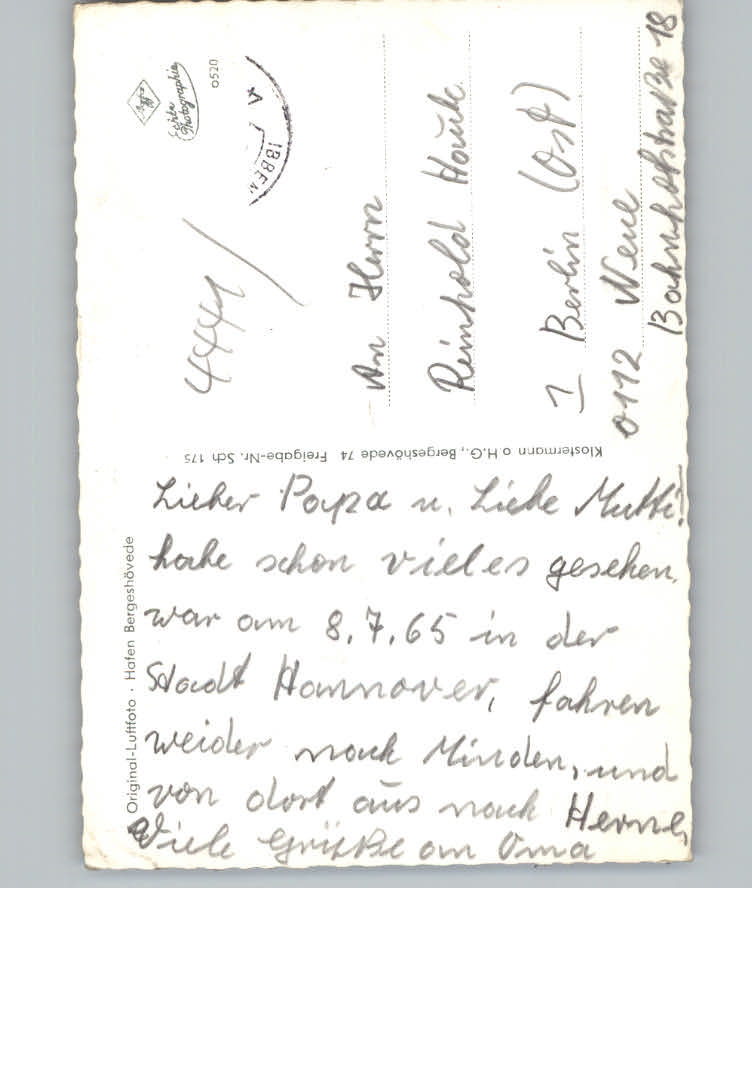 Original-Luftfoto · Hafen Bergeshövede
Lieber Papa u. Liebe Mutti!
habe schon vieles gesehen.
war am 8.7.65 in der
Stadt Hannover, fahren
weider nach Minden, und
von dort aus nach Herne,
Viele Grüße an Oma
Klostermann o.H.G., Bergeshövede 74 Freigabe-Nr. Sch 175
Agfa
Echte
Photographie
0520
IBBEN
4441
An Herrn
Reinhold
1 Berlin (Ost)
0112
Bahnhofstraße 18